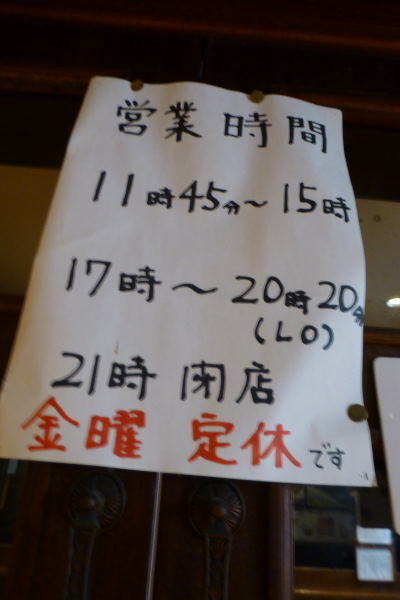 営業時間
11時45分～15時
17時～20時20分
(LO)
21時 閉店
金曜 定休です